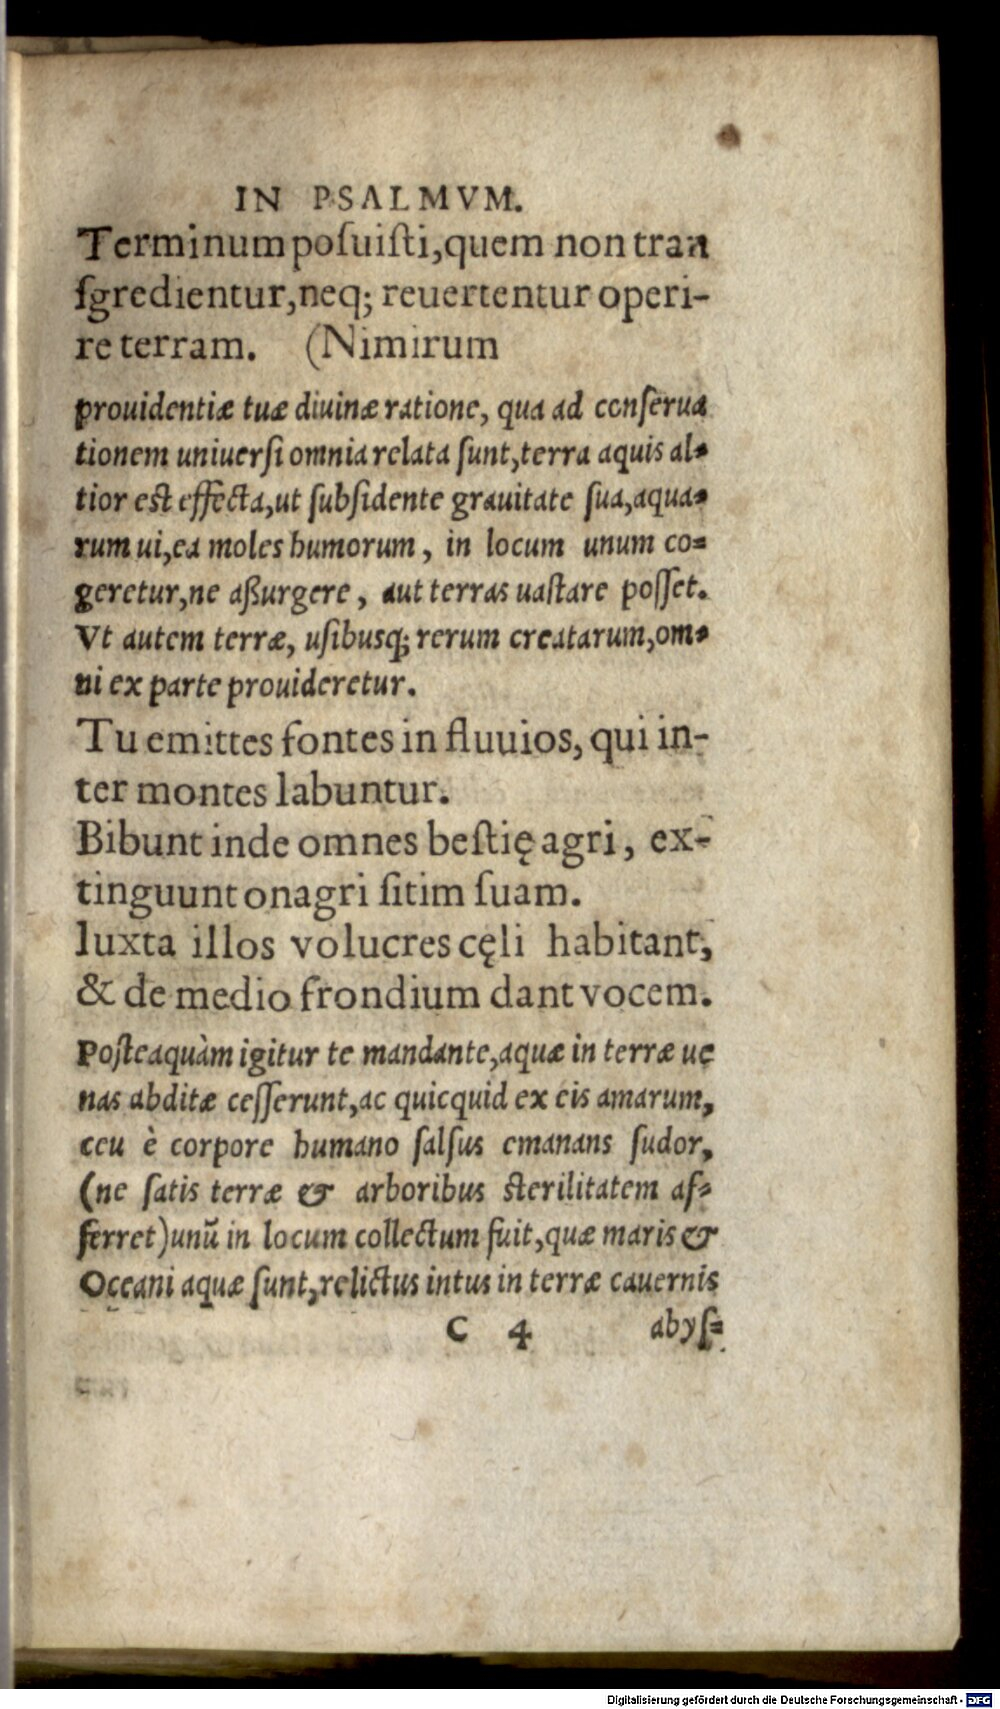 IN PSALMVM.
Terminum posuisti, quem non tran
sgredientur, neq; reuertentur operi-
re terram. (Nimirum
prouidentiæ tuæ diuinæ ratione, qua ad conserua
tionem uniuersi omnia relata sunt, terra aquis al=
tior est effecta, ut subsidente grauitate sua, aqua=
rum ui, ea moles humorum, in locum unum co=
geretur, ne aßurgere, aut terras uastare posset.
Vt autem terræ, usibusq; rerum creatarum, om=
ni ex parte prouideretur.
Tu emittes fontes in fluuios, qui in-
ter montes labuntur.
Bibunt inde omnes bestię agri, ex-
tinguunt onagri sitim suam.
Iuxta illos volucres cęli habitant,
& de medio frondium dant vocem.
Posteaquàm igitur te mandante, aquæ in terræ ue
nas abditæ cesserunt, ac quicquid ex eis amarum,
ceu è corpore humano salsus emanans sudor,
(ne satis terræ & arboribus sterilitatem af=
ferret) unũ in locum collectum fuit, quæ maris &
Oceani aquæ sunt, relictus intus in terræ cauernis
C 4 abys=
Digitalisierung gefördert durch die Deutsche Forschungsgemeinschaft - DFG